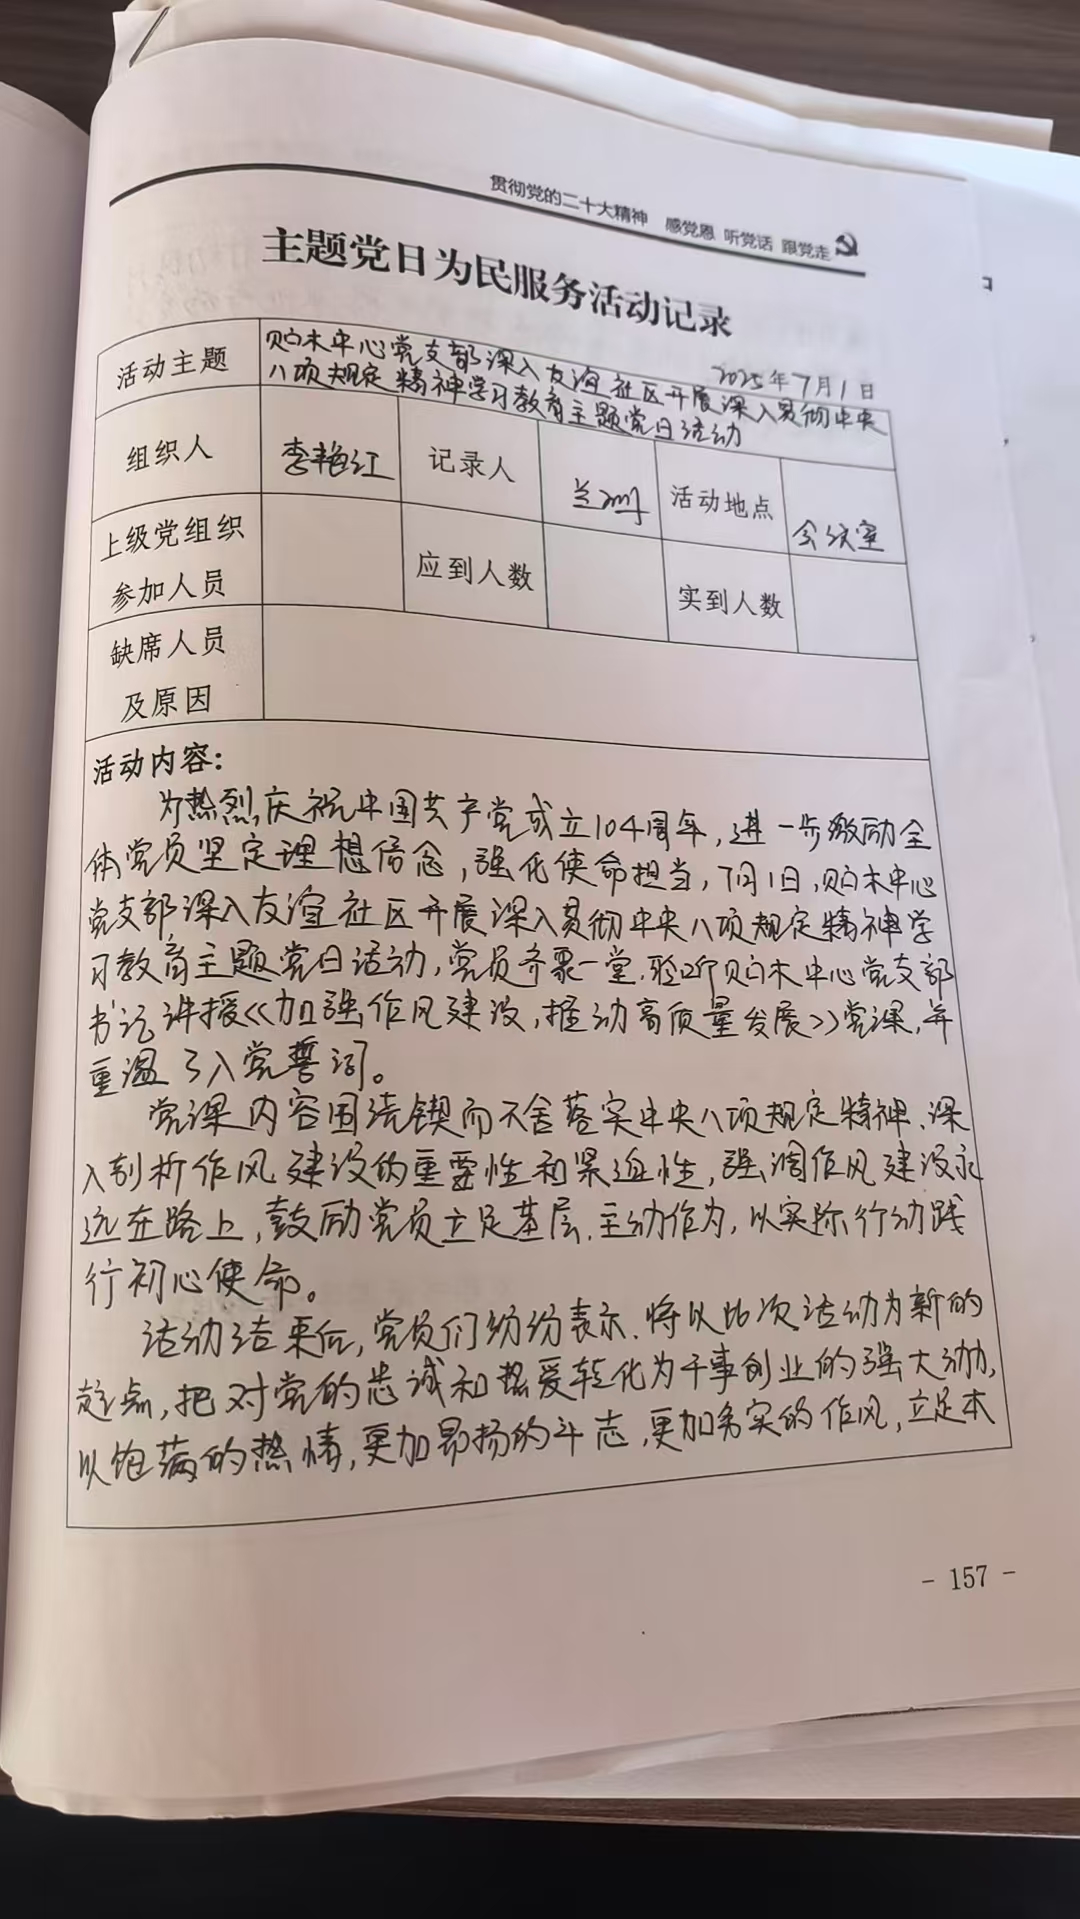 贯彻党的二十大精神 感党恩 听党话 跟党走
主题党日为民服务活动记录
2025年7月1日
活动主题 购木中心党支部深入友谊社区开展深入贯彻中央
八项规定精神学习教育主题党日活动
组织人 李艳红 记录人 活动地点 会议室
上级党组织
参加人员 应到人数 实到人数
缺席人员
及原因
活动内容：
为热烈庆祝中国共产党成立104周年，进一步激励全
体党员坚定理想信念，强化使命担当，7月1日，购木中心
党支部深入友谊社区开展深入贯彻中央八项规定精神学
习教育主题党日活动，党员齐聚一堂，聆听购木中心党支部
书记讲授《加强作风建设，推动高质量发展》党课，并
重温了入党誓词。
党课内容围绕锲而不舍落实中央八项规定精神、深
入剖析作风建设的重要性和紧迫性，强调作风建设永
远在路上，鼓励党员立足基层、主动作为，以实际行动践
行初心使命。
活动结束后，党员们纷纷表示、将以此次活动为新的
起点，把对党的忠诚和热爱转化为干事创业的强大动力，
以饱满的热情，更加昂扬的斗志，更加务实的作风，立足本
- 157 -